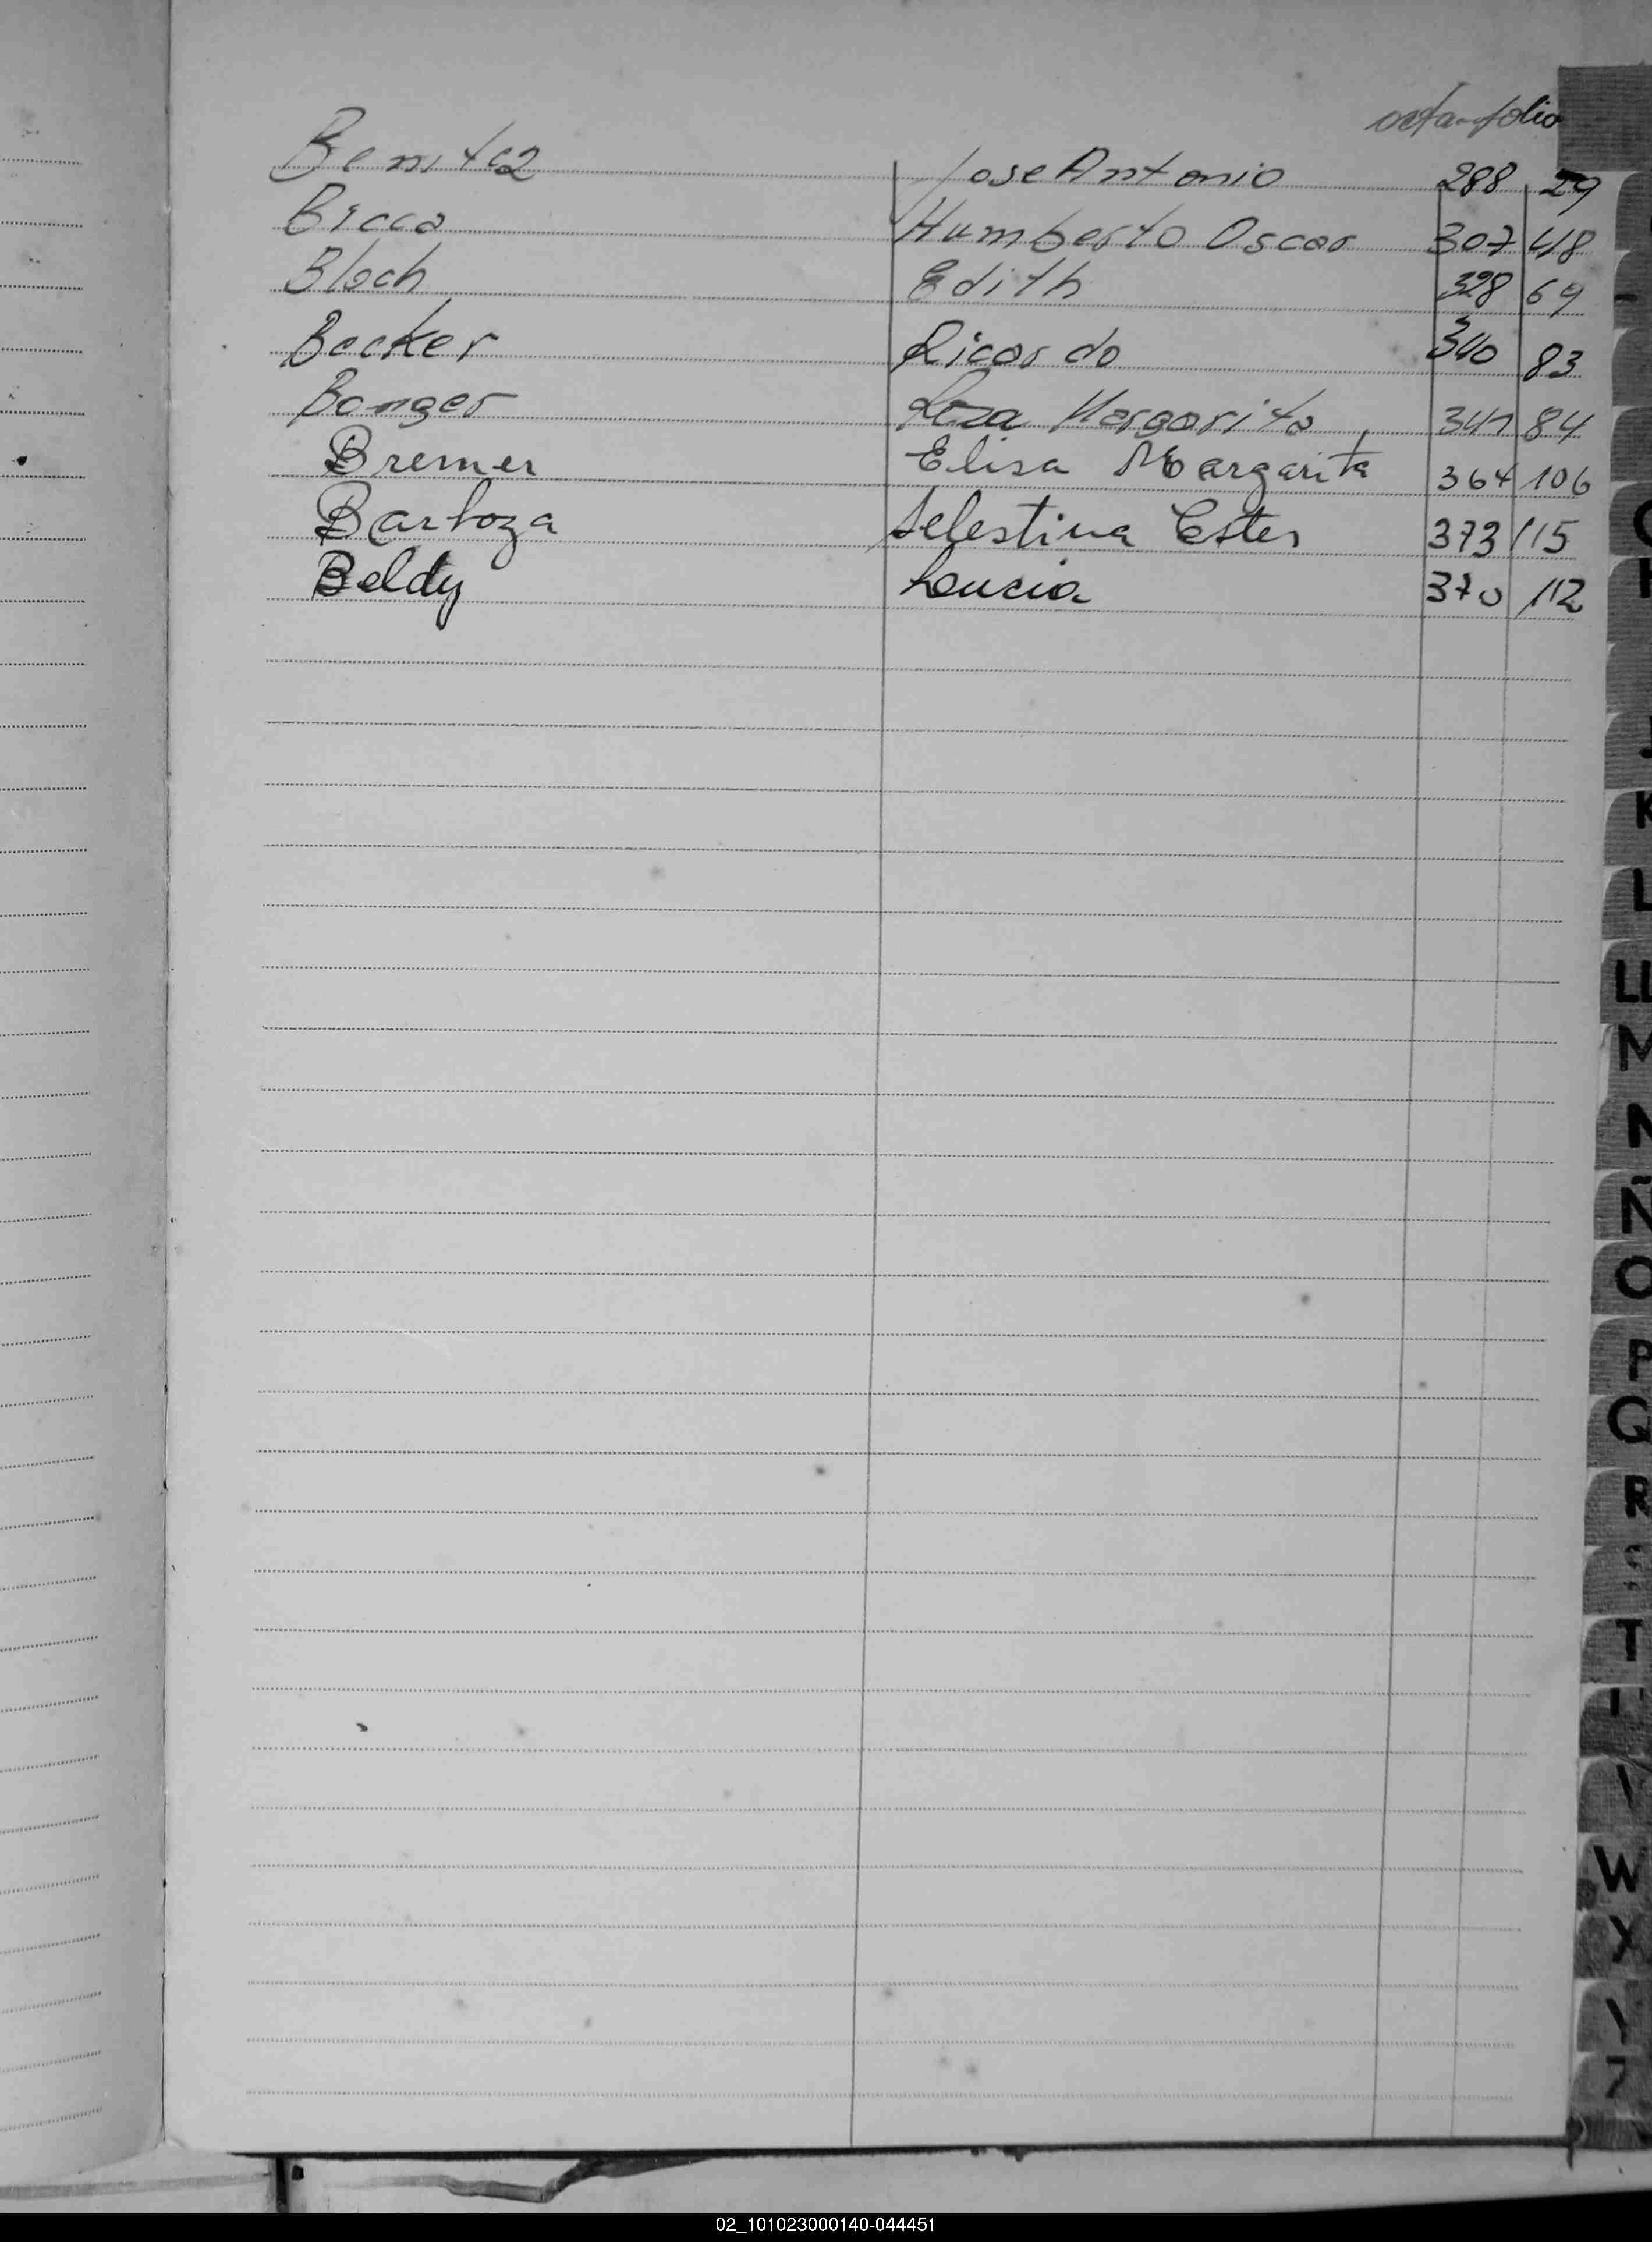 acta-folio
Benitez Jose Antonio 288 29
Bicca Humberto Oscar 307 48
Bloch Edith 328 69
Becker Ricardo 340 83
Bonger Margarita 341 84
Bremer Elisa Margarita 364 106
Barboza Selestina Ester 373 115
Beldy Loucia 370 112
K
L
LL
M
N
Ñ
O
P
Q
R
T
W
X
Z
02_101023000140-044451